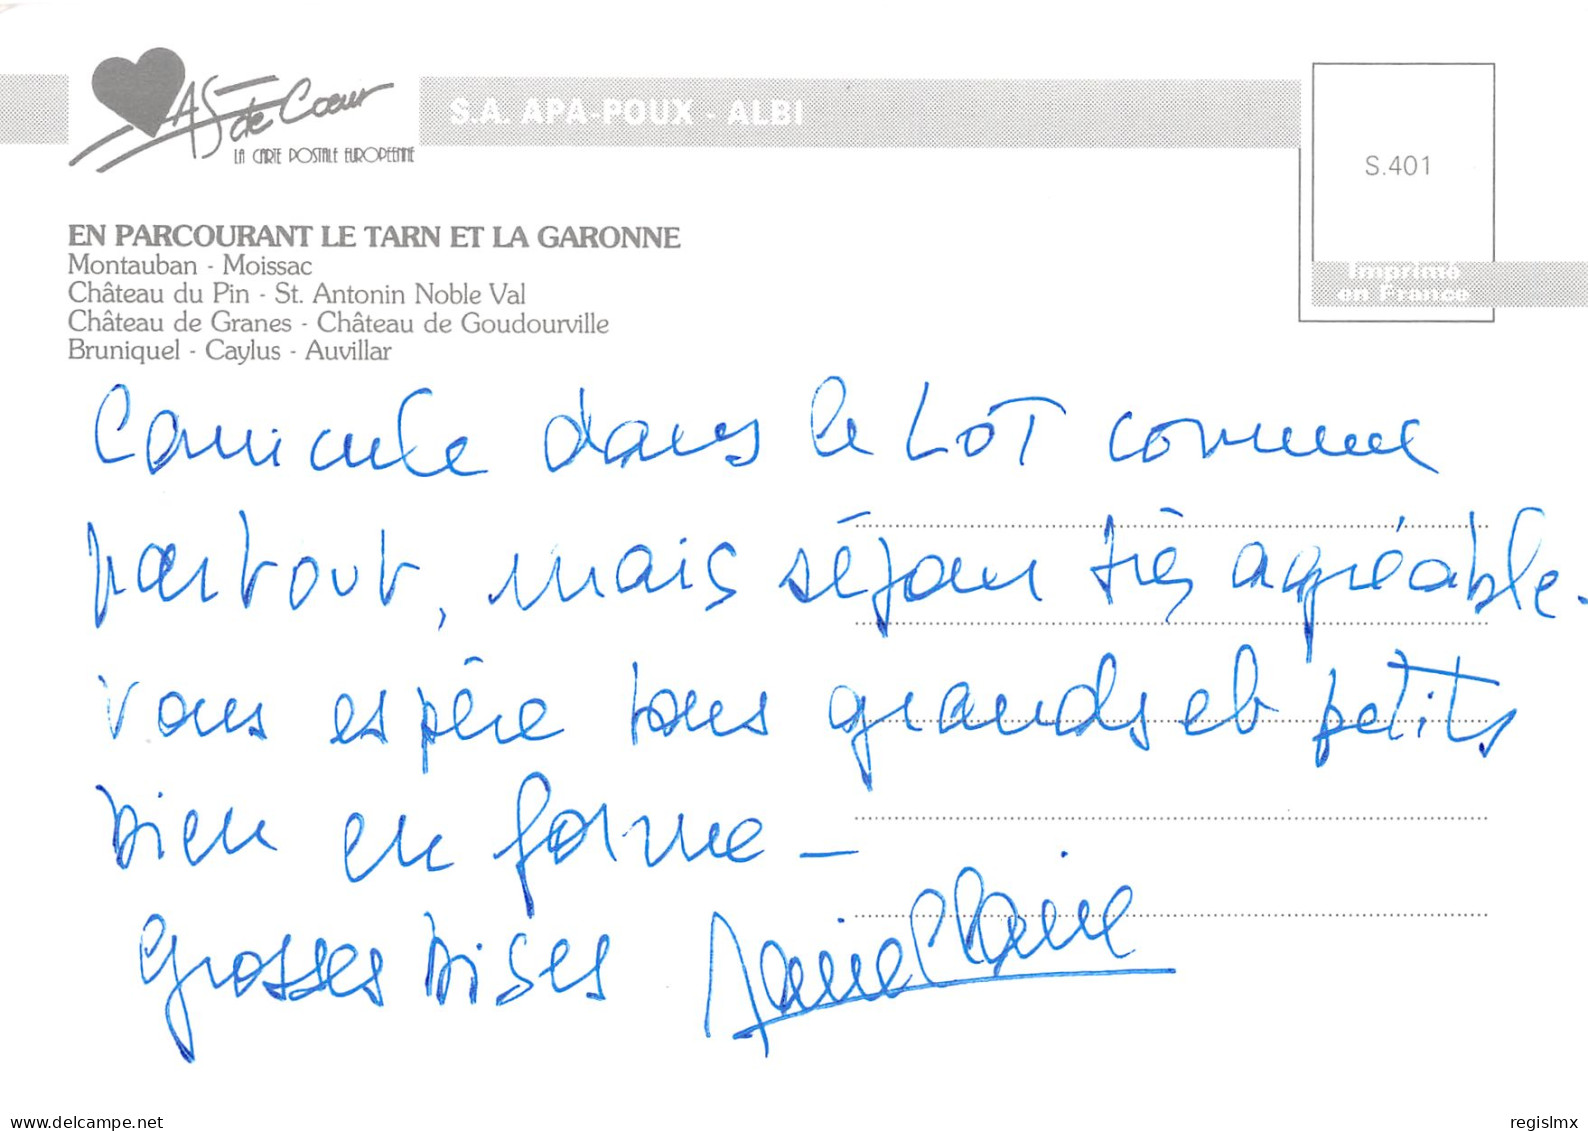 AS de Coeur
LA CARTE POSTALE EUROPEENNE
S.A. APA-POUX - ALBI
S.401
Imprimé
en France
EN PARCOURANT LE TARN ET LA GARONNE
Montauban - Moissac
Château du Pin - St. Antonin Noble Val
Château de Granes - Château de Goudourville
Bruniquel - Caylus - Auvillar
Canicule dans le LOT comme
partout, mais séjour très agréable.
Vous espère tous grands et petits
bien en forme –
Grosses bises Marie Claire
delcampe.net
regislmx